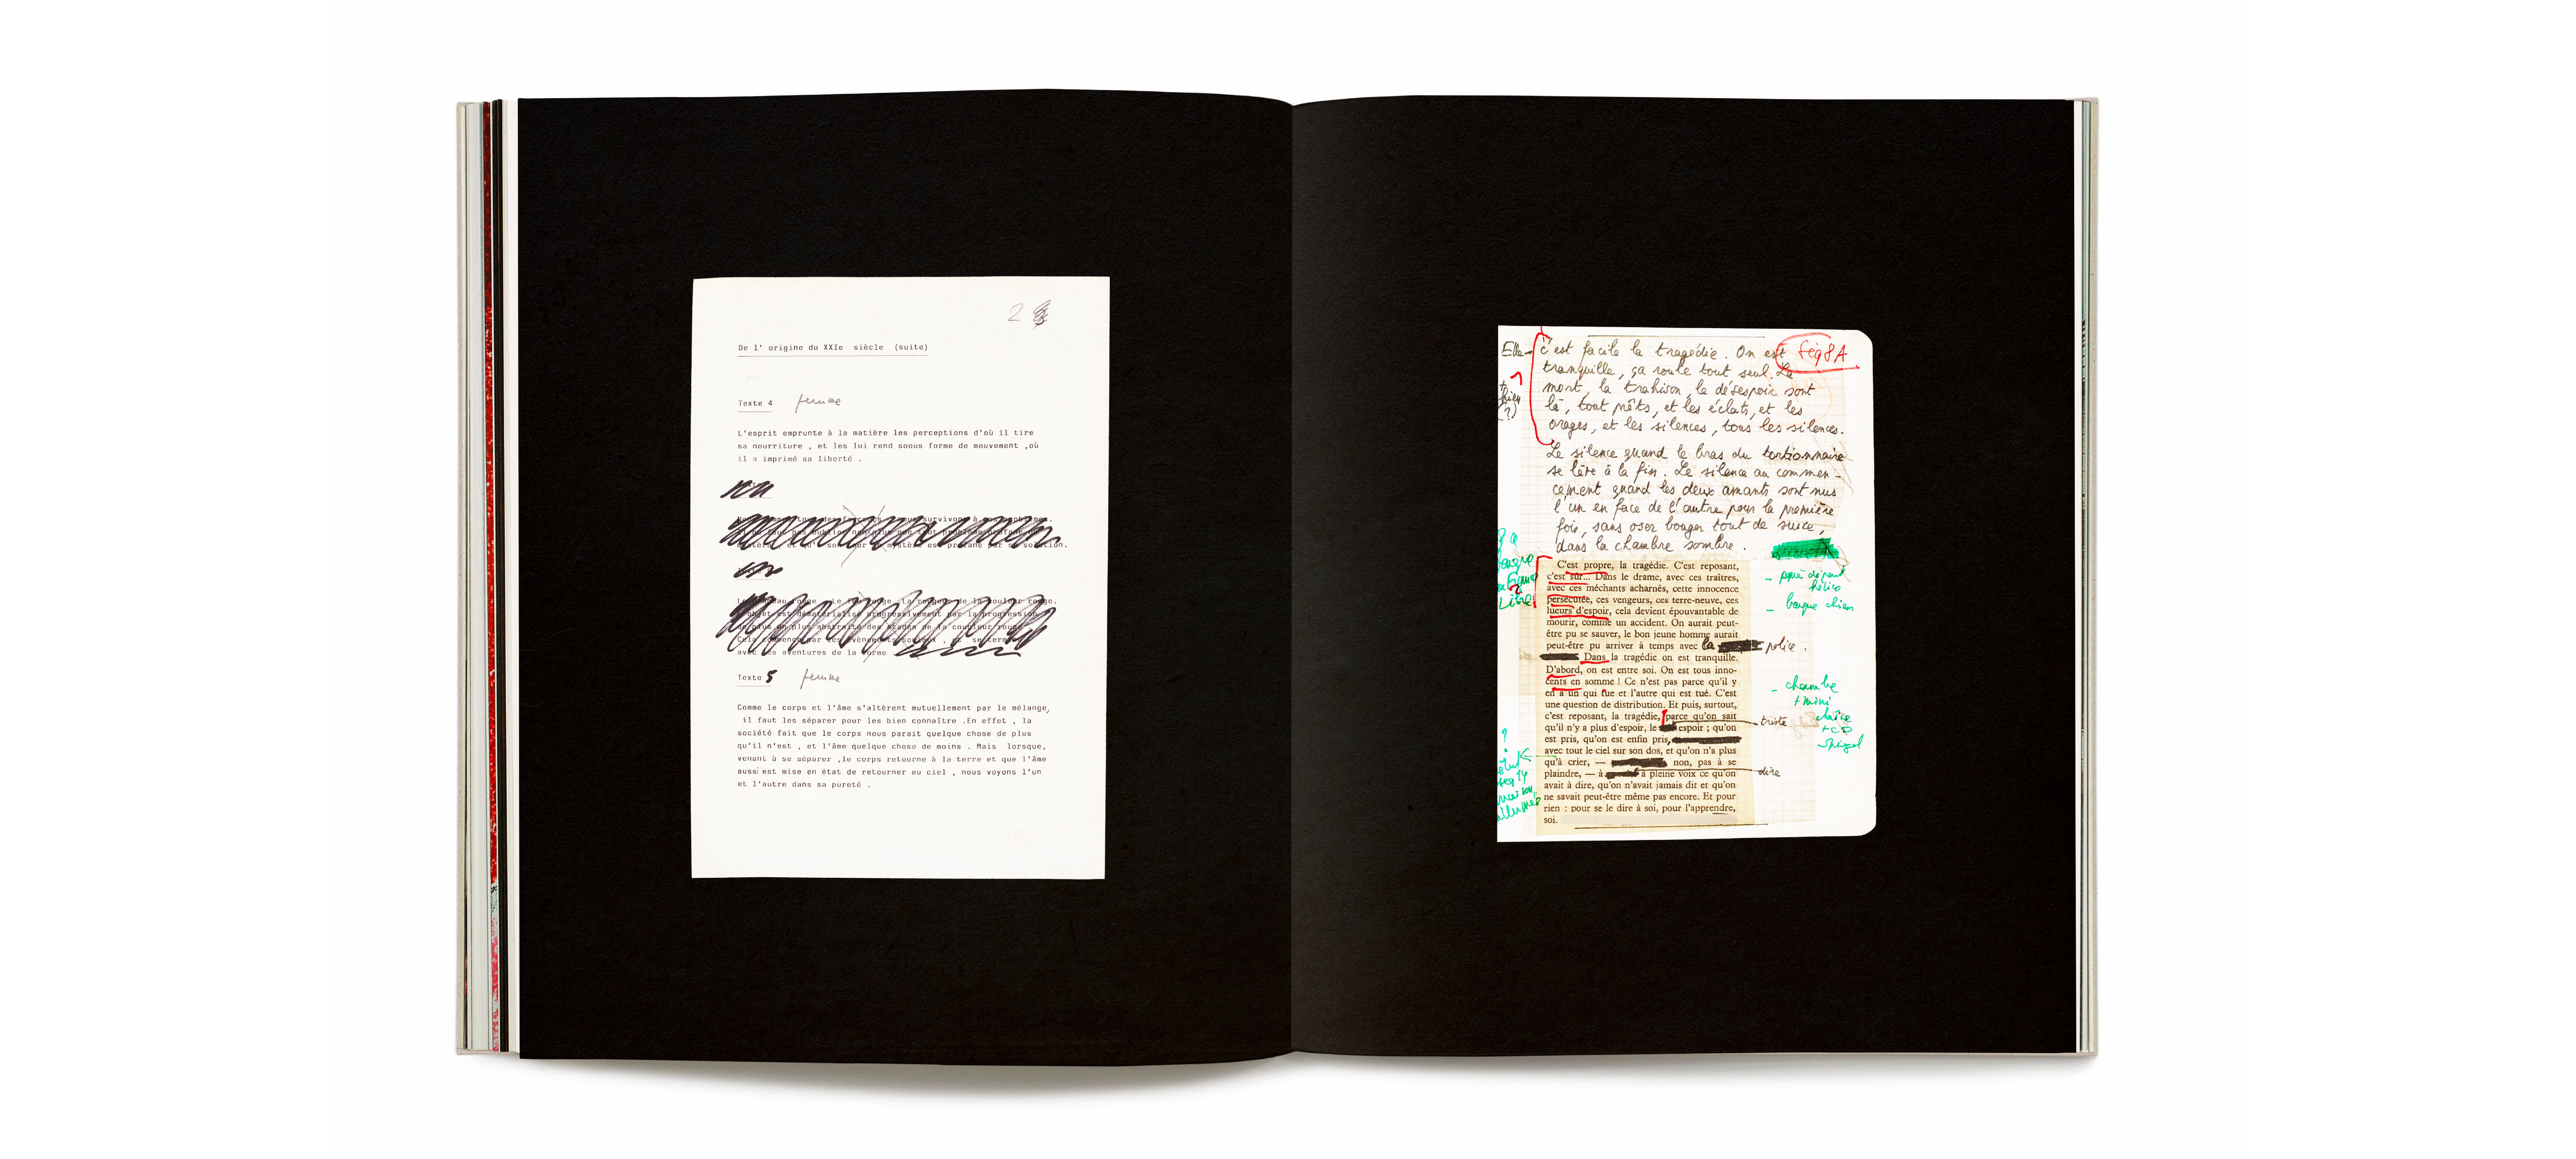 2
De l' origine du XXIe siècle (suite)
Texte 4 femme
L'esprit emprunte à la matière les perceptions d'où il tire
sa nourriture , et les lui rend soous forme de mouvement ,où
il a imprimé sa liberté .
survivons à
mystère est profané par sa solution.
rouge la rougeur de la couleur rouge.
objet est dématérialisé progressivement par la progression
de plus en plus abstraite des nuages de la couleur rouge
Cela commence par les évènements sociaux , et se termine
avec les aventures de la forme
Texte 5 femme
Comme le corps et l'âme s'altèrent mutuellement par le mélange,
il faut les séparer pour les bien connaître .En effet , la
société fait que le corps nous parait quelque chose de plus
qu'il n'est , et l'âme quelque chose de moins . Mais lorsque,
venant à se séparer ,le corps retourne à la terre et que l'âme
aussi est mise en état de retourner au ciel , nous voyons l'un
et l'autre dans sa pureté .
Elle
Séq 8A
c'est facile la tragédie. On est
tranquille, ça roule tout seul. La
mort, la trahison, le désespoir sont
là, tout prêts, et les éclats, et les
orages, et les silences, tous les silences.
Le silence quand le bras du tortionnaire
se lève à la fin. Le silence au commen-
cement quand les deux amants sont nus
l'un en face de l'autre pour la première
fois, sans oser bouger tout de suite,
dans la chambre sombre.
C'est propre, la tragédie. C'est reposant,
c'est sûr... Dans le drame, avec ces traîtres,
avec ces méchants acharnés, cette innocence
persécutée, ces vengeurs, ces terre-neuve, ces
lueurs d'espoir, cela devient épouvantable de
mourir, comme un accident. On aurait peut-
être pu se sauver, le bon jeune homme aurait
peut-être pu arriver à temps avec la police.
Dans la tragédie on est tranquille.
D'abord, on est entre soi. On est tous inno-
cents en somme ! Ce n'est pas parce qu'il y
en a un qui tue et l'autre qui est tué. C'est
une question de distribution. Et puis, surtout,
c'est reposant, la tragédie, parce qu'on sait
qu'il n'y a plus d'espoir, le espoir ; qu'on
est pris, qu'on est enfin pris,
avec tout le ciel sur son dos, et qu'on n'a plus
qu'à crier, — non, pas à se
plaindre, — à à pleine voix ce qu'on
avait à dire, qu'on n'avait jamais dit et qu'on
ne savait peut-être même pas encore. Et pour
rien : pour se le dire à soi, pour l'apprendre,
soi.
triste
dire
départ
hélico
barque chien
chambre
+ mini
chaîne
+ CD